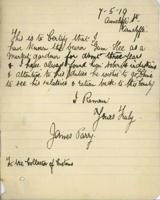 7-5-19
This is to Certify that I
have known the bearer Gum Hee as a
Market gardner for about three years
& I have always found him sober & industrious
& attentive to his duties he wishes to go home
to see his relatives and return back to this County
I Remain
Yours Truly
James Parry
To the Collector of Customs